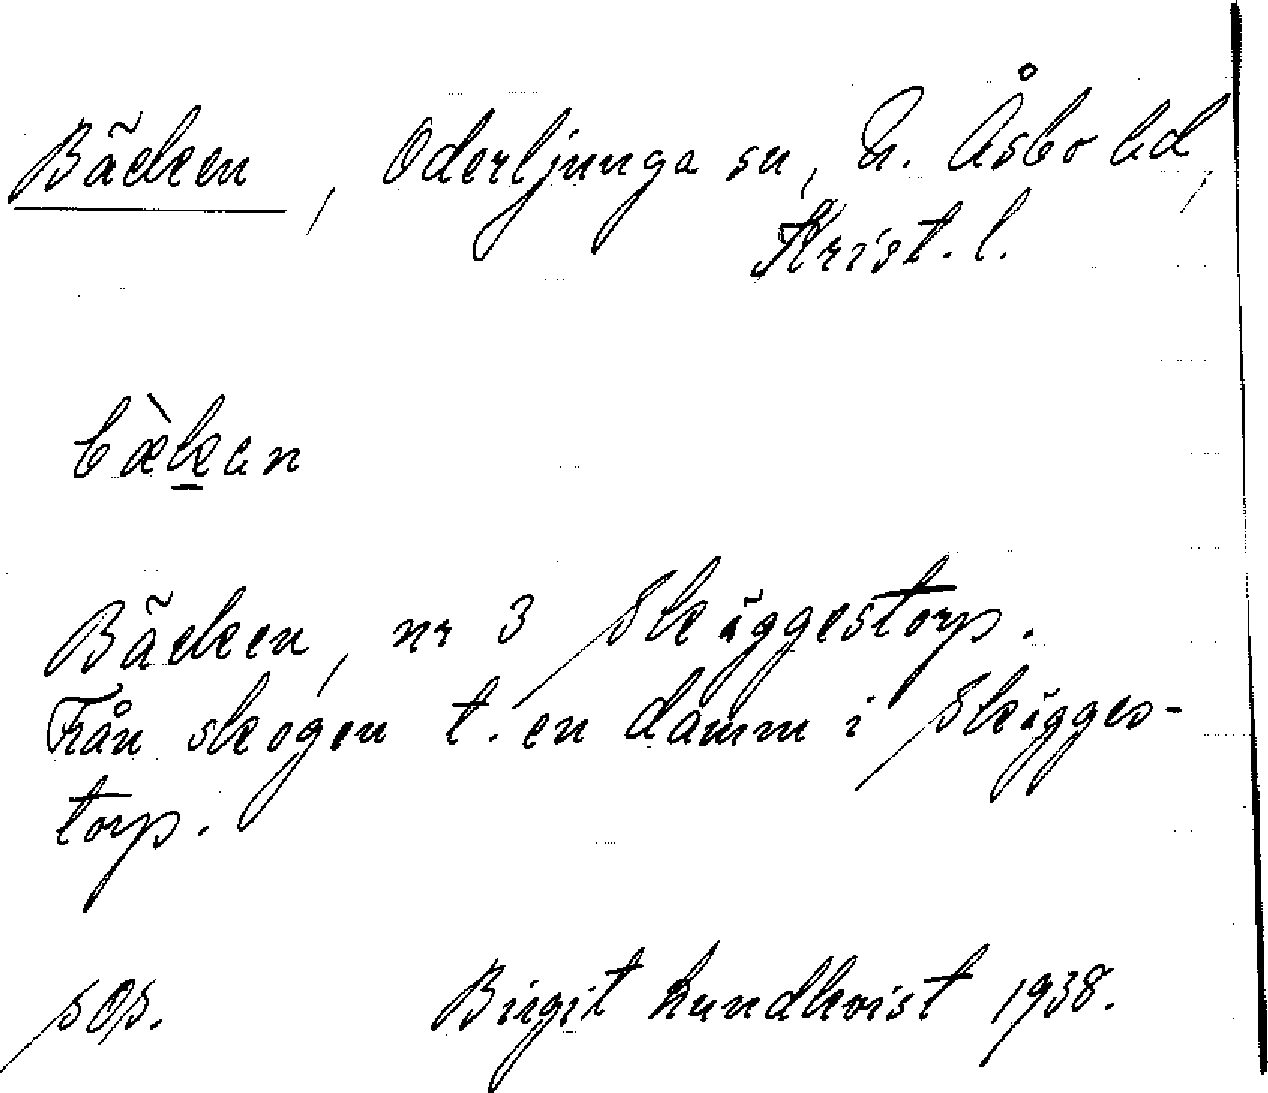 Bäcken, Oderljunga sn, N. Åsbo hd,
Krist. l.
bæ̀k̠an
Bäcken, nr 3 Skäggestorp.
Från skogen t. en damm i Skägges-
torp.
Birgit Lundkvist 1938.